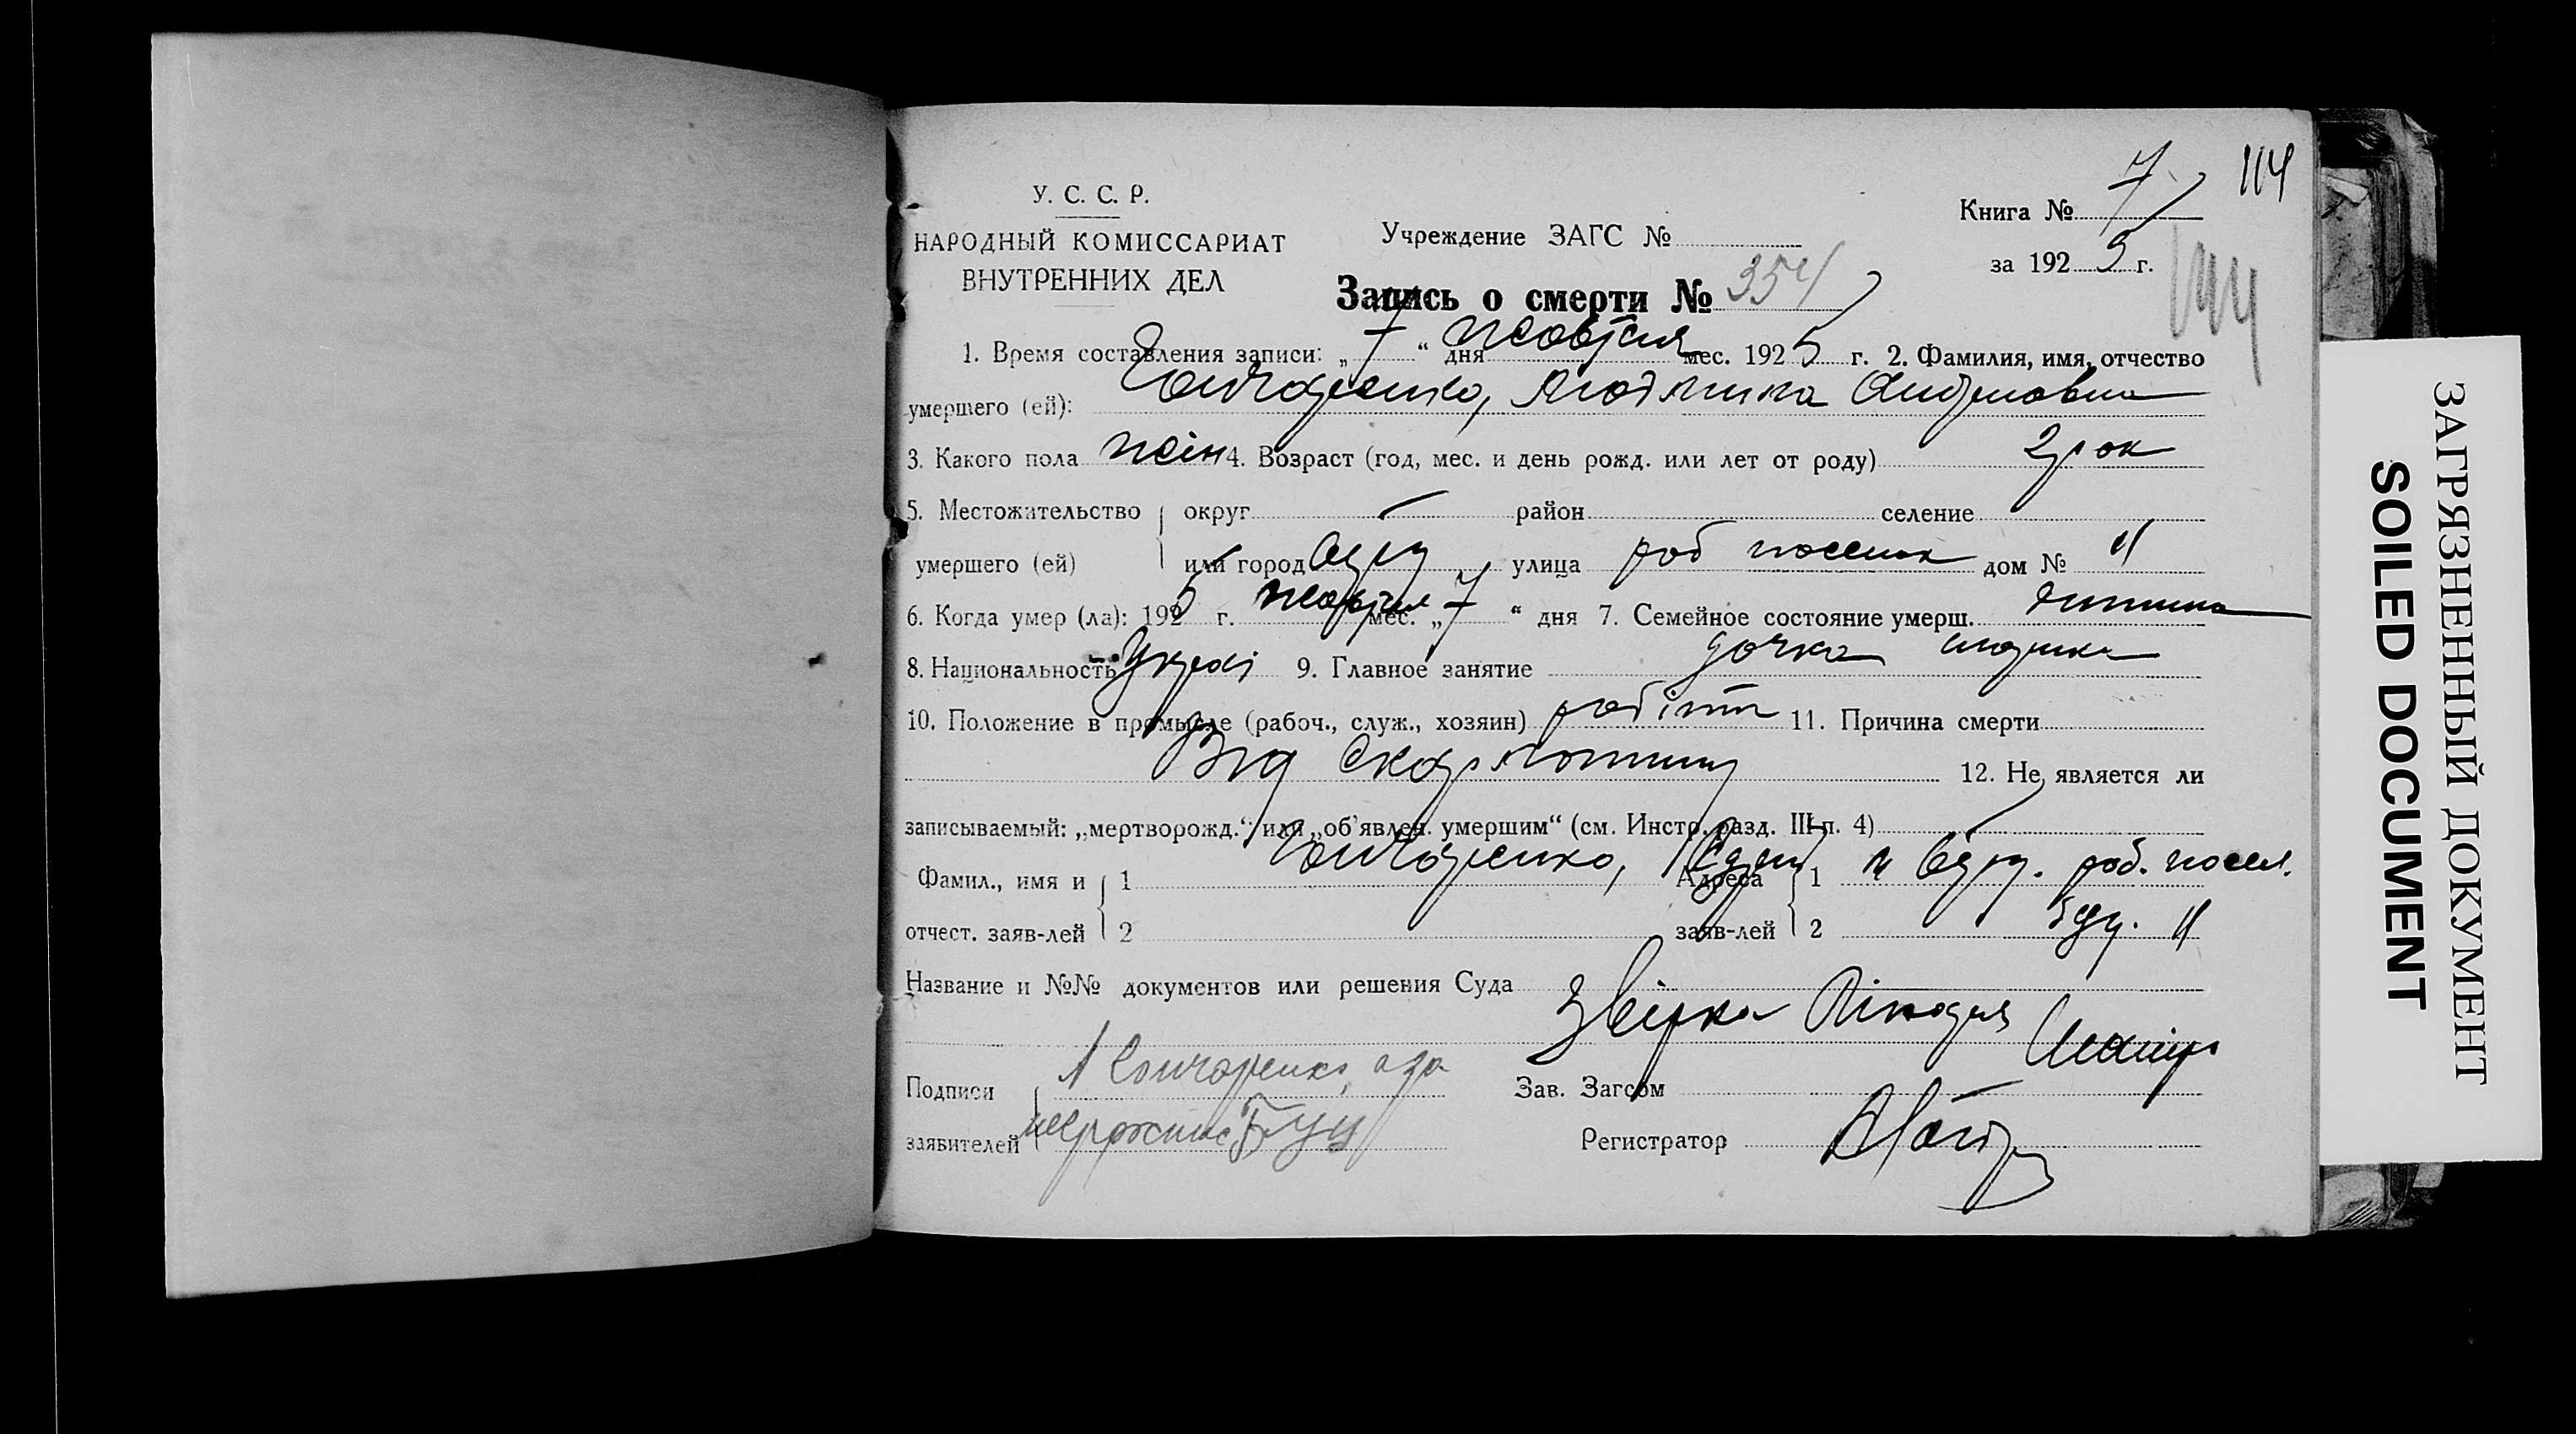 114
Книга № 7
У. С. С. Р.
НАРОДНЫЙ КОМИССАРИАТ
ВНУТРЕННИХ ДЕЛ
Учреждение ЗАГС №
за 1925 г.
144
Запись о смерти № 354
1. Время составления записи: „7“ дня жовтня мес. 1925 г. 2. Фамилия, имя, отчество
умершего (ей): Гончаренко, Людмила
3. Какого пола жін 4. Возраст (год, мес. и день рожд. или лет от роду) 2 рок
5. Местожительство округ район селение
умершего (ей) или город улица роб поселок дом № 11
6. Когда умер (ла): 1925 г. жовтня мес. „7“ дня 7. Семейное состояние умерш. дитина
8. Национальность Украї 9. Главное занятие дочка
10. Положение в промысле (рабоч., служ., хозяин) робітн 11. Причина смерти
Від Скарлатини 12. Не является ли
записываемый: „мертворожд.“ или „об'явлен. умершим“ (см. Инстр. разд. III п. 4)
Фамил., имя и 1 Гончаренко, Адреса 1 роб. посел.
отчест. заяв-лей 2 заяв-лей 2 11
Название и №№ документов или решения Суда
Подписи Гончаренко, Зав. Загсом
заявителей Регистратор
ЗАГРЯЗНЕННЫЙ ДОКУМЕНТ
SOILED DOCUMENT